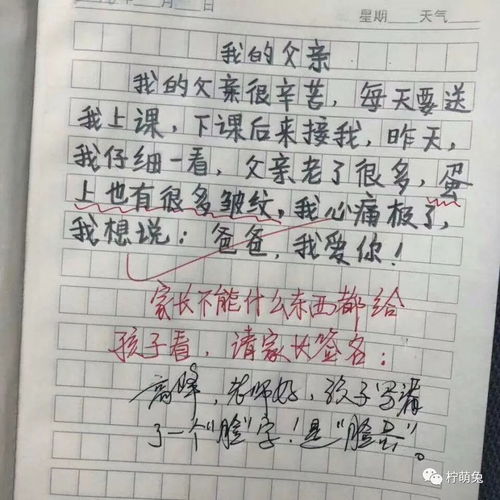 星期 天气
我的父亲
我的父亲很辛苦，每天要送
我上课，下课后来接我，昨天，
我仔细一看，父亲老了很多，蛋
上也有很多皱纹，我心痛极了，
我想说：爸爸，我爱你！
家长不能什么东西都给
孩子看，请家长签名：
高峰，老师好，孩子写漏
了一个"脸"字！是"脸蛋"。
柠萌兔